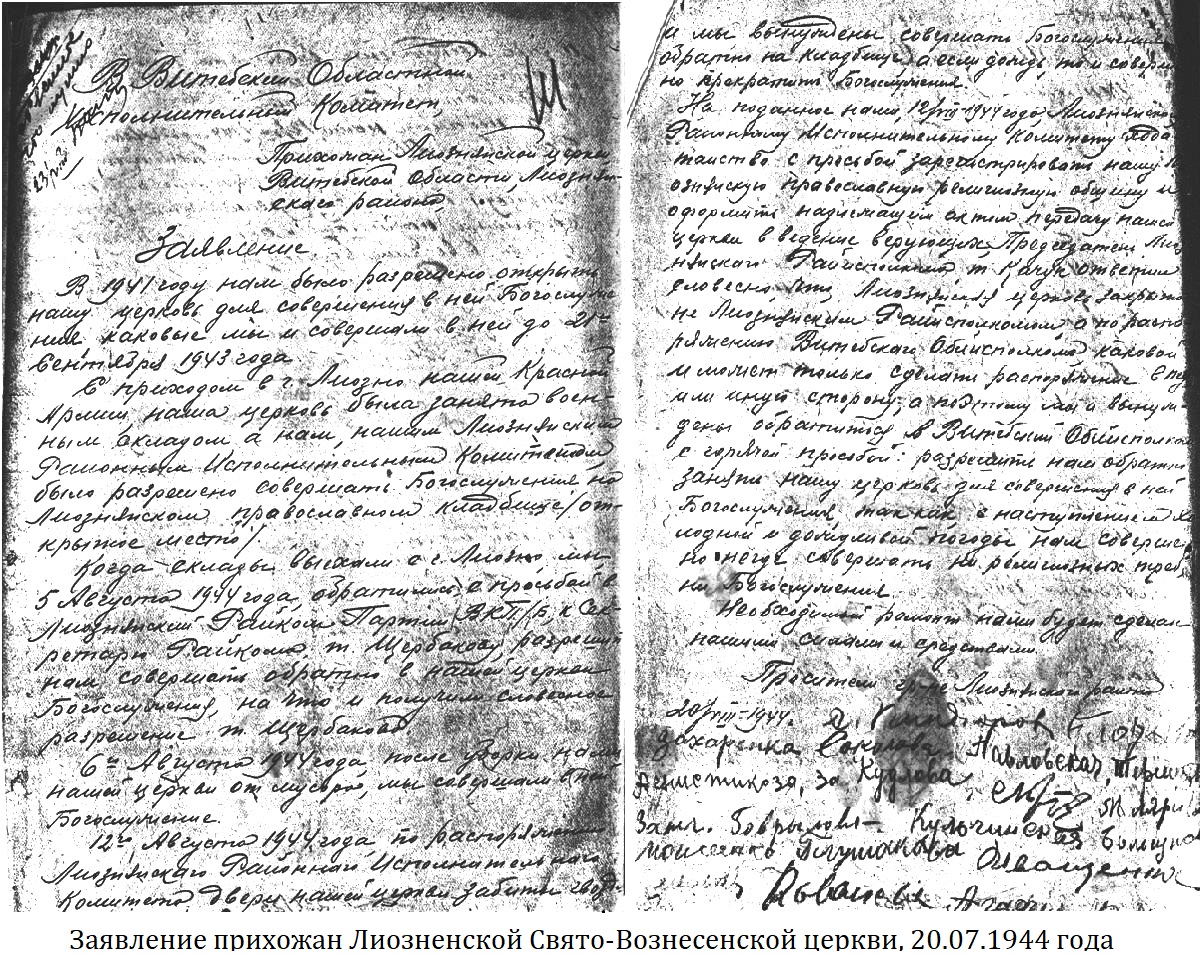 В Витебский Областной
Исполнительный Комитет,
Прихожан Лиознянской церкви
Витебской Области, Лиознян-
скаго района,
Заявление
В 1941 году нам было разрешено открыть
нашу церковь для совершения в ней Богослуже-
ния каковые мы и совершали в ней до 21го
Сентября 1943 года.
С приходом в г. Лиозно нашей Красной
Армии, наша церковь была занята воен-
ным складом а нам, нашим Лиознянским
Районным Исполнительным Комитетом,
было разрешено совершать Богослужения на
Лиознянском православном кладбище /от-
крытое место/
Когда склады выехали с г. Лиозно, мы
5 Августа 1944 года, обратились с просьбой в
Лиознянский Райком Партии ВКП/Б, к Сек-
ретарю Райкома, т. Щербакову, разрешить
нам совершать обратно в нашей церкви
Богослужения, на что и получили словесное
разрешение т. Щербакова.
6го Августа 1944 года, после уборки нами
нашей церкви от мусора, мы совершали в ней
Богослужение.
12го Августа 1944 года, по распоряжению
Лиознянскаго Районнаго Исполнительнаго
Комитета двери нашей церкви забиты гвоз-
и мы вынуждены совершать Богослужения
обратно на кладбище, а если дождь то и соверш
но прекратить Богослужения.
На поданное нами, 12/VIII 1944 года Лиознянско
Районному Исполнительному Комитету хода
тайство с просьбой зарегистрировать нашу Ли
ознянскую православную религиозную общину и
оформить надлежащим актом передачу нашей
церкви в ведение верующих, Председатель Лиоз
нянскаго Райисполкома т. Качун ответил
словесно, что Лиознянская церковь закрыта
не Лиознянским Райисполкомом а по распо
ряжению Витебскаго Облисполкома каковой
и может только сделать распоряжение в ту
или иную сторону, а поэтому мы и вынуж-
дены обратиться в Витебский Облисполком
с горячей просьбой: разрешить нам обратно
занять нашу церковь для совершения в ней
Богослужения, так как с наступлением хо
лодной и дождливой погоды нам соверше
но негде совершать ни религиозных треб
ни Богослужения.
Необходимый ремонт нами будет сделан
нашими силами и средствами.
Просители гр-не Лиознянскаго района
20/VIII-1944г.
Захаренка Соколова, Павловская,
за Кудлова
Моисеенко Глушакова
Заявление прихожан Лиозненской Свято-Вознесенской церкви, 20.07.1944 года